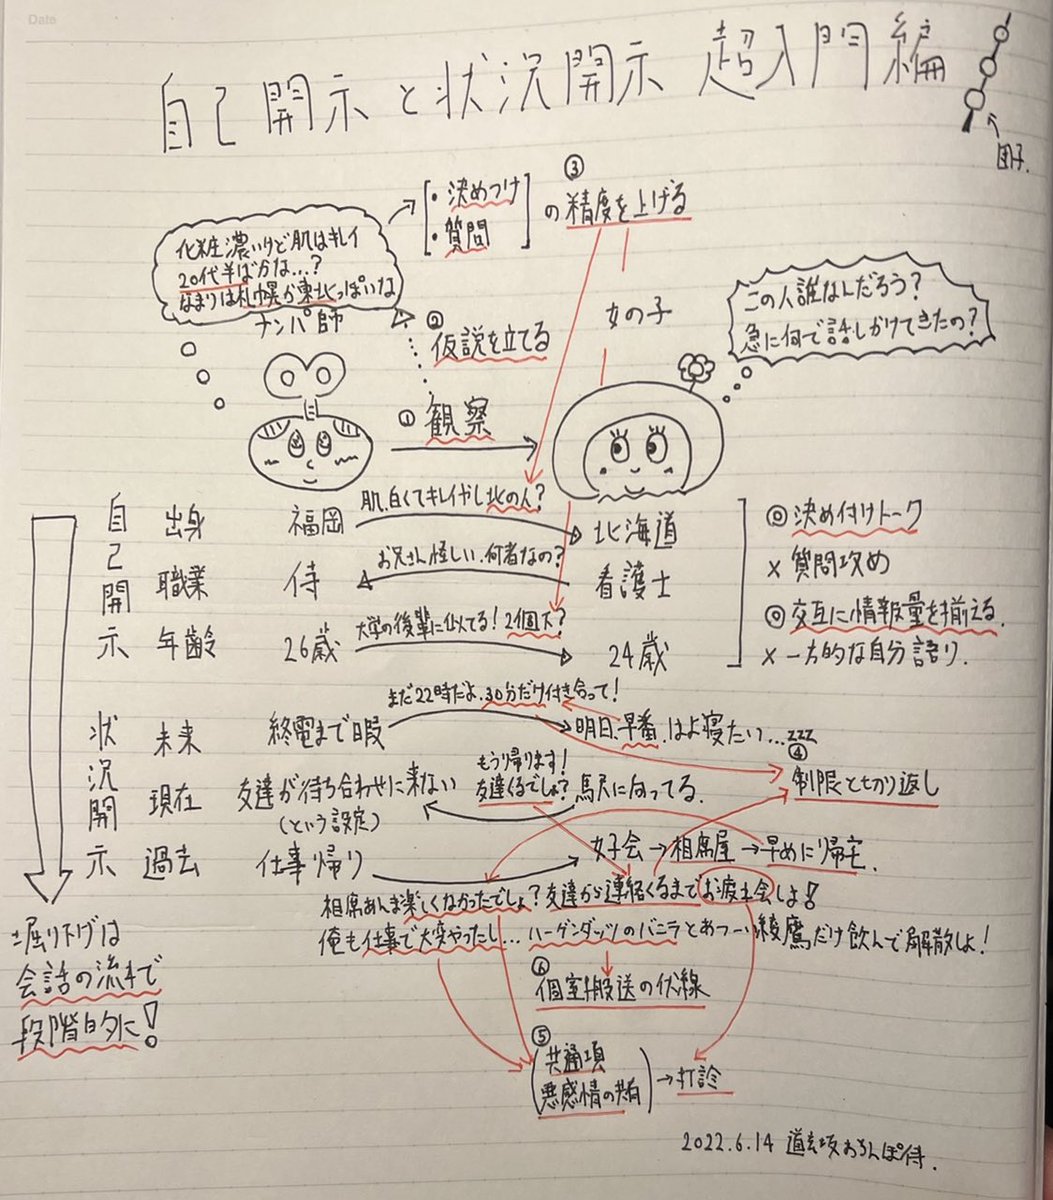 Date
自己開示と状況開示 超入門編
団子.
③
・決めつけ
・質問
の精度を上げる
化粧濃いけど肌はキレイ
20代半ばかな…?
なまりは札幌か東北っぽいな
ナンパ師
②
仮説を立てる
女の子
この人誰なんだろう?
急に何で話しかけてきたの?
① 観察
自己開示
出身 福岡 肌、白くてキレイやし北の人? 北海道
職業 侍 お兄さん怪しい、何者なの? 看護士
年齢 26歳 大学の後輩に似てる!2個下? 24歳
◎ 決め付けトーク
× 質問攻め
◎ 交互に情報量を揃える.
× 一方的な自分語り.
状況開示
まだ22時だよ、30分だけ付き合って!
未来 終電まで暇 明日、早番、はよ寝たい…zzz
④
制限と切り返し
もう帰ります!
友達くるでしょ?
現在 友達が待ち合わせに来ない 馬尺に向ってる.
(という設定)
過去 仕事帰り 女子会→相席屋→早めに帰宅.
相席あんま楽しくなかったでしょ?友達から連絡くるまでお疲れ会しよ!
俺も仕事で大変やったし…ハーゲンダッツのバニラとあつーい綾鷹だけ飲んで解散しよ!
掘り下げは
会話の流れで
段階的に!
⑥
個室搬送の伏線
⑤
共通項
悪感情の共有
→打診
2022.6.14 道玄坂おちんぽ侍.